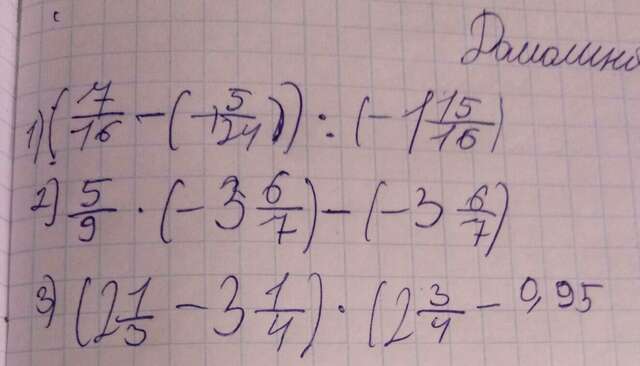 Домашня
1) (7/16 - (-5/24)) : (-1 15/16)
2) 5/9 · (-3 6/7) - (-3 6/7)
3) (2 1/3 - 3 1/4) · (2 3/4 - 0,95